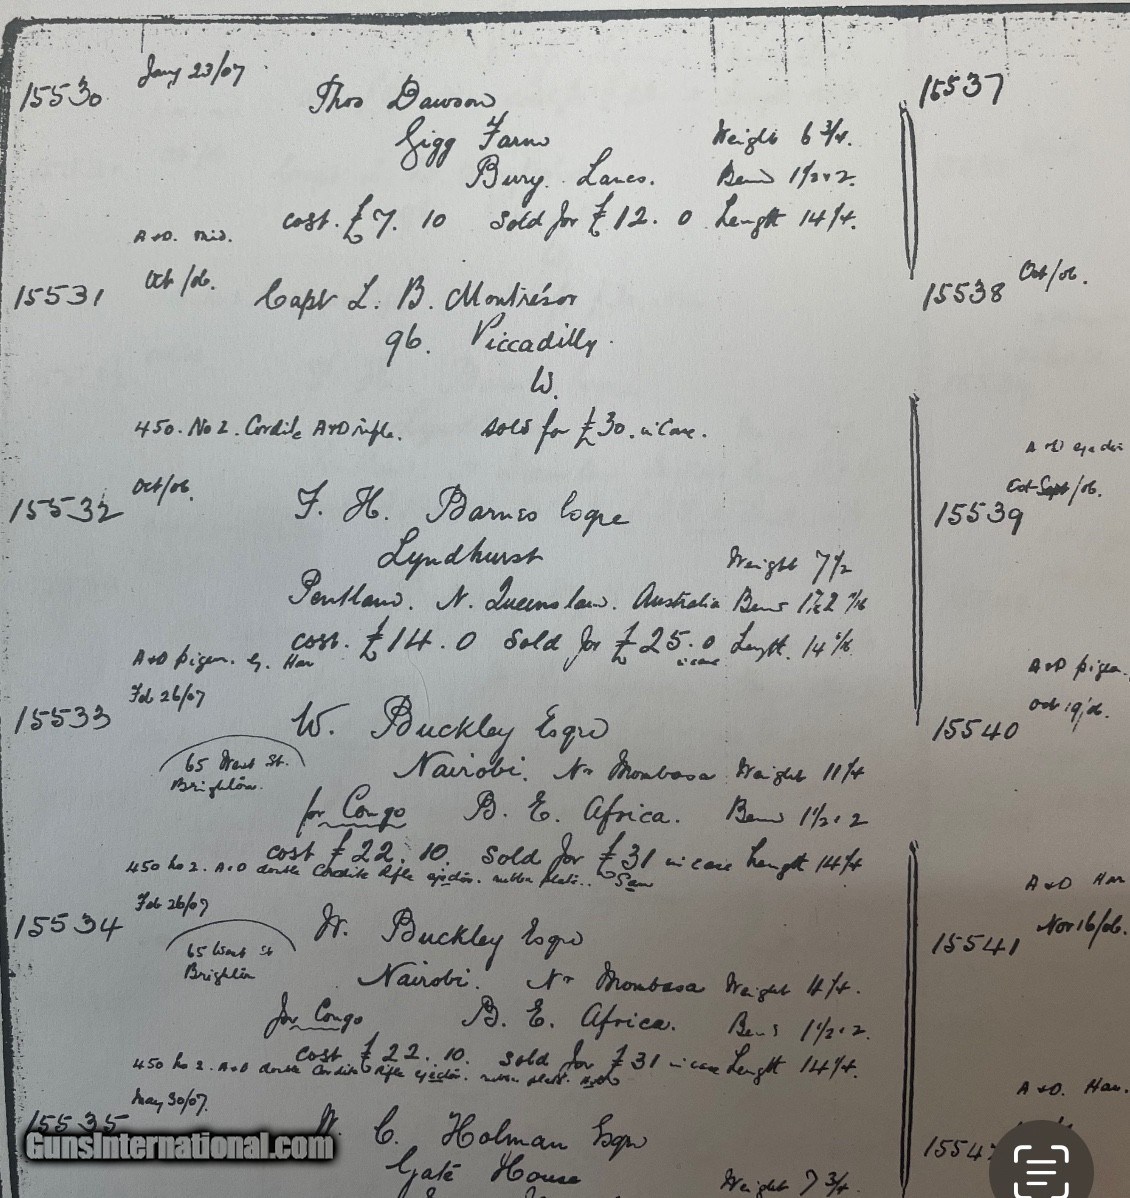 15530 Jany 23/07 Thos Dawson
Gigg Farm Weight 6 3/4.
Bury. Lancs. Bend 1 1/2 . 2.
cost. £7. 10 Sold for £12. 0 Length 14 1/4.
A & D. mid.
15531 Oct /06. Capt L. B. Montrésor
96. Piccadilly.
W.
450. No 2. Cordite A & D rifle. Sold for £30. in Case.
15532 Oct/06. F. H. Barnes Esqre
Lyndhurst Weight 7 1/2
Pentland. N. Queensland. Australia Bend
cost. £14. 0 Sold for £25. 0 Length.
in case
A & D pigeon. Ham
15533 Feb 26/07 W. Buckley Esqre
65 West St. Nairobi. Nr Mombasa Weight 11 1/4
Brighton.
for Congo B. E. Africa. Bend 1 1/2 . 2
cost £22. 10. Sold for £31 in case Length 14 1/4
450 No 2. A & D double Cordite Rifle ejector. rubber plate.
15534 Feb 26/07 W. Buckley Esqre
65 West St Nairobi. Nr Mombasa Weight 11 1/4.
Brighton
for Congo B. E. Africa. Bend 1 1/2 . 2.
cost £22. 10. Sold for £31 in case Length 14 1/4.
450 No 2. A & D double Cordite Rifle ejector. rubber plate.
15535 May 30/07. C. Holman Esqre
Gate House Weight 7 3/4.
15537
15538 Oct/06.
A & D ejector
15539 Oct Sept/06.
A & D pigeon.
15540 Oct 19/06.
A & D Ham
15541 Nov 16/06.
A & D. Ham.
1554
GunsInternational.com